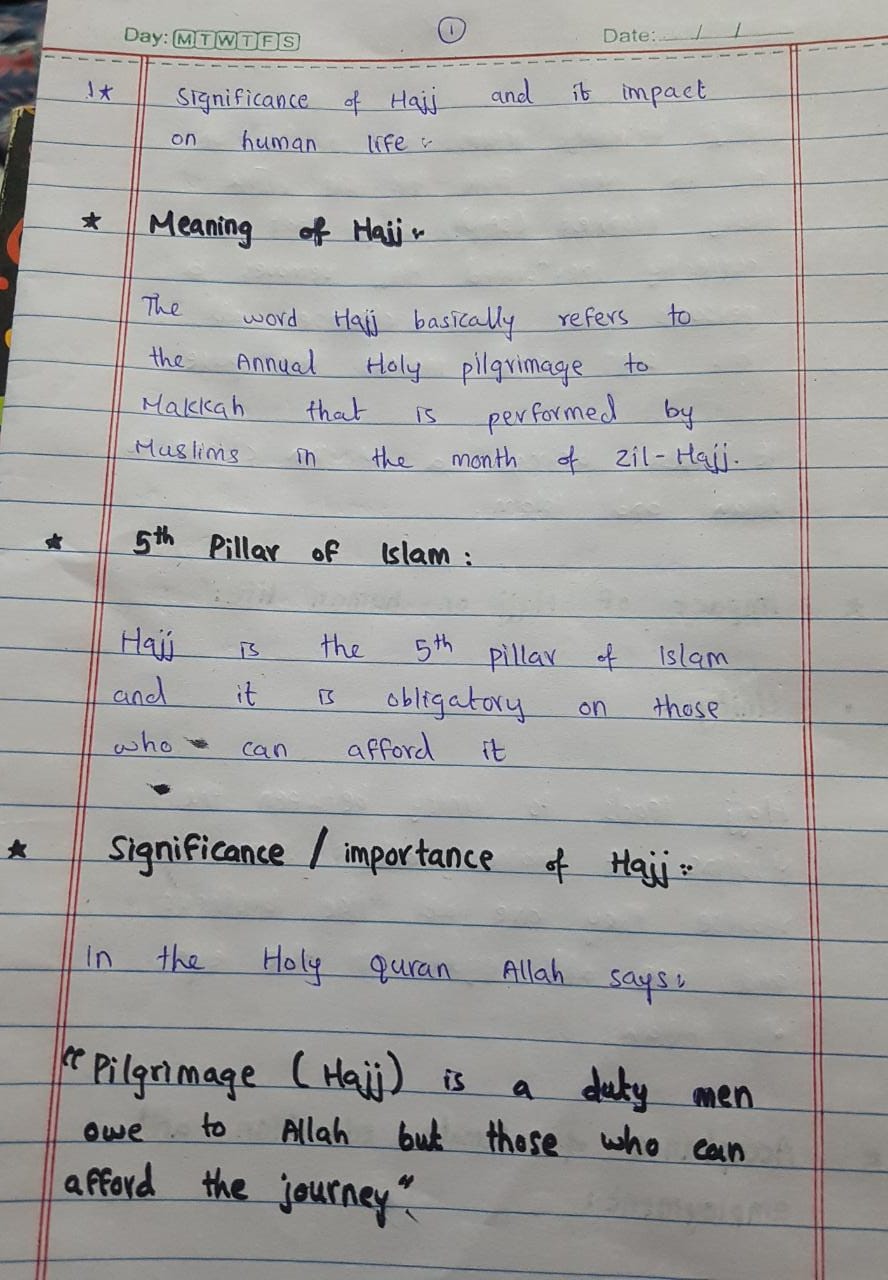 Day: M T W T F S ① Date: / /
1* Significance of Hajj and it impact
on human life :
* Meaning of Hajj :
The word Hajj basically refers to
the Annual Holy pilgrimage to
Makkah that is performed by
Muslims in the month of zil-Hajj.
* 5th Pillar of Islam :
Hajj is the 5th pillar of Islam
and it is obligatory on those
who can afford it
* Significance / importance of Hajj :
In the Holy quran Allah says :
"Pilgrimage (Hajj) is a duty men
owe to Allah but those who can
afford the journey".